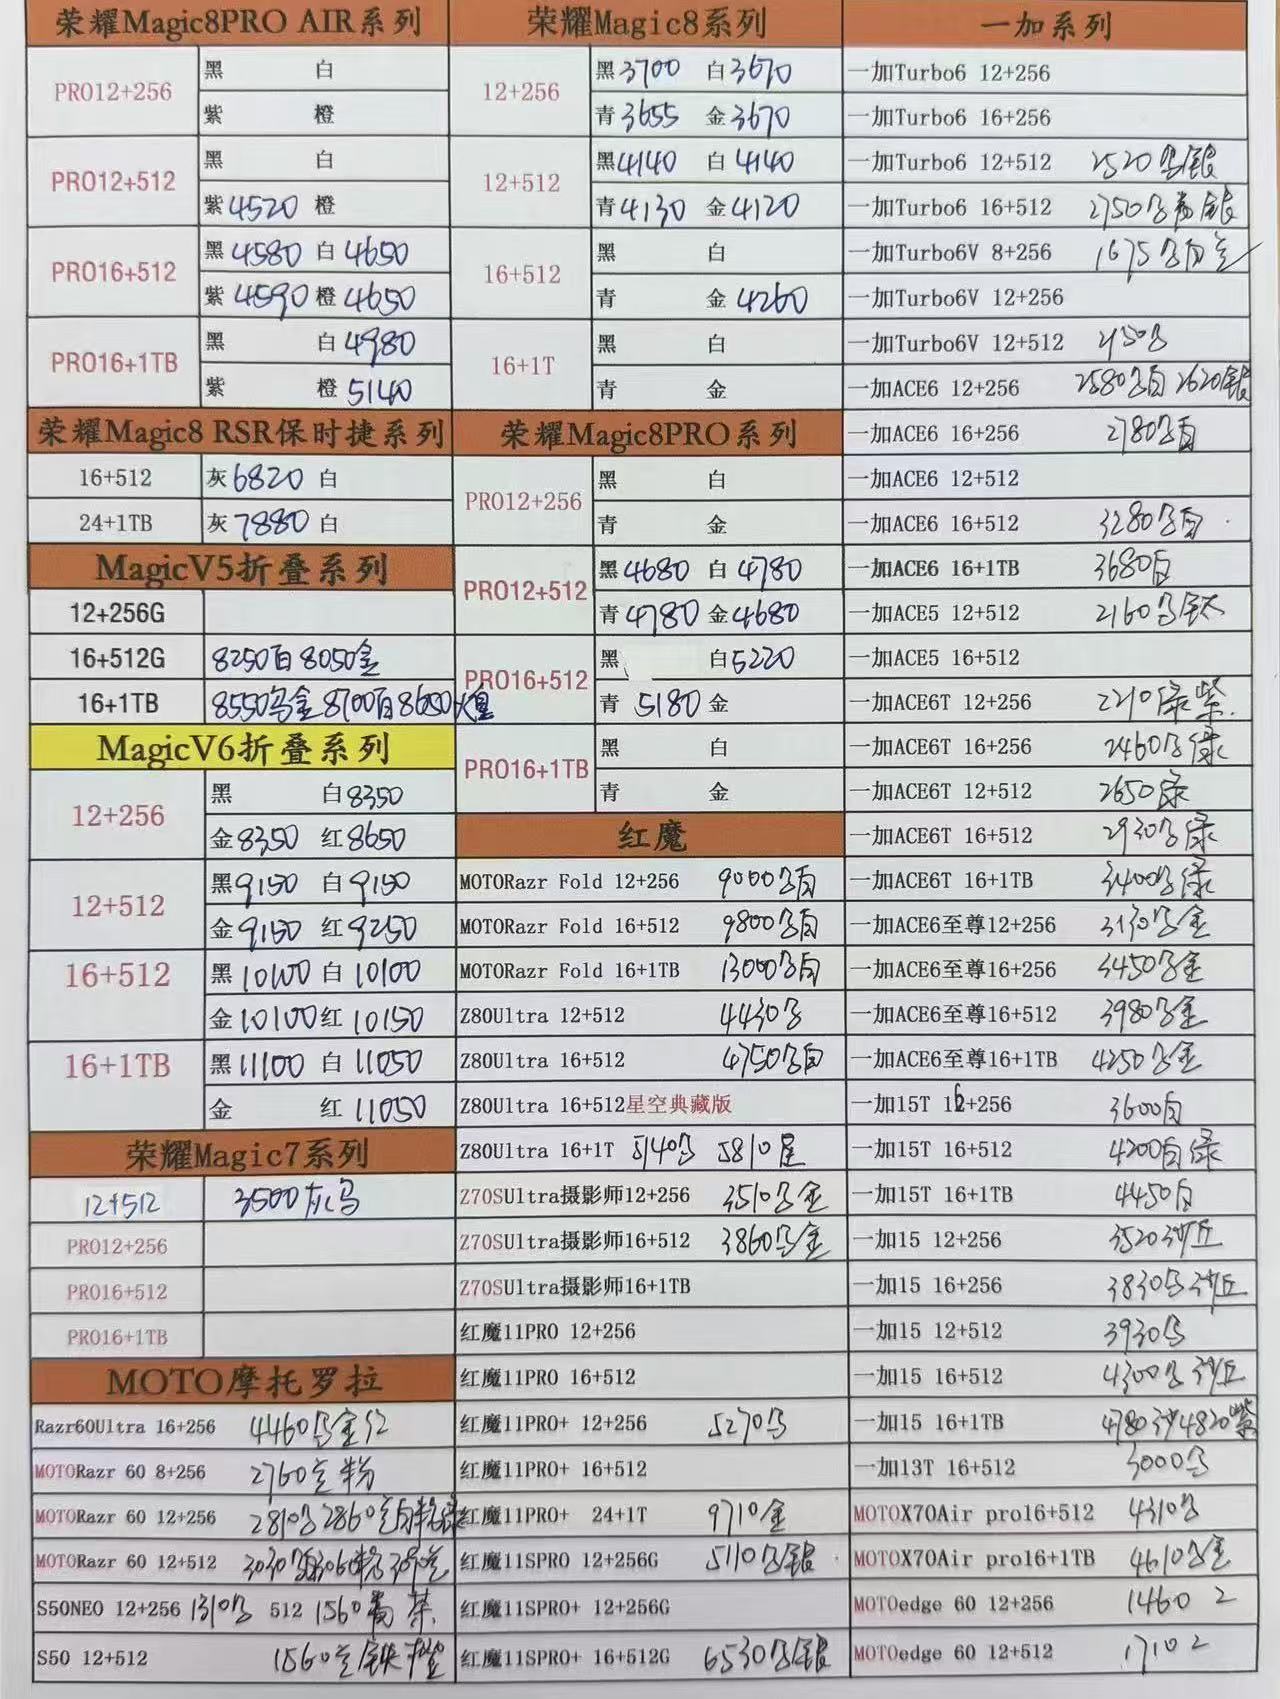 荣耀Magic8PRO AIR系列
PRO12+256 黑 白
紫 橙
PRO12+512 黑 白
紫4520 橙
PRO16+512 黑4580 白4650
紫4590 橙4650
PRO16+1TB 黑 白4980
紫 橙5140
荣耀Magic8 RSR保时捷系列
16+512 灰6820 白
24+1TB 灰7880 白
MagicV5折叠系列
12+256G
16+512G 8250白8050金
16+1TB 8550乌金8700白8650大皇
MagicV6折叠系列
12+256 黑 白8350
金8350 红8650
12+512 黑9150 白9150
金9150 红9250
16+512 黑10100 白10100
金10100 红10150
16+1TB 黑11100 白11050
金 红11050
荣耀Magic7系列
12+512 3500灰乌
PRO12+256
PRO16+512
PRO16+1TB
MOTO摩托罗拉
Razr60Ultra 16+256 4460乌金红
MOTORazr 60 8+256 2760兰粉
MOTORazr 60 12+256 2810乌2860兰白粉绿
MOTORazr 60 12+512 3030 3060粉
S50NEO 12+256 1310乌 512 1560 茶
S50 12+512 1560兰银橙
荣耀Magic8系列
12+256 黑3700 白3670
青3655 金3670
12+512 黑4140 白4140
青4130 金4120
16+512 黑 白
青 金4260
16+1T 黑 白
青 金
荣耀Magic8PRO系列
PRO12+256 黑 白
青 金
PRO12+512 黑4680 白4780
青4780 金4680
PRO16+512 黑 白5220
青5180 金
PRO16+1TB 黑 白
青 金
红魔
MOTORazr Fold 12+256 9000乌白
MOTORazr Fold 16+512 9800乌白
MOTORazr Fold 16+1TB 13000乌白
Z80Ultra 12+512 4430乌
Z80Ultra 16+512 4750乌白
Z80Ultra 16+512星空典藏版
Z80Ultra 16+1T 5140乌 5810星
Z70SUltra摄影师12+256 3510乌金
Z70SUltra摄影师16+512 3860乌金
Z70SUltra摄影师16+1TB
红魔11PRO 12+256
红魔11PRO 16+512
红魔11PRO+ 12+256 5270乌
红魔11PRO+ 16+512
红魔11PRO+ 24+1T 9710金
红魔11SPRO 12+256G 5110乌银
红魔11SPRO+ 12+256G
红魔11SPRO+ 16+512G 6530乌银
一加系列
一加Turbo6 12+256
一加Turbo6 16+256
一加Turbo6 12+512 2520乌银
一加Turbo6 16+512 2750乌 银
一加Turbo6V 8+256 1675乌白兰
一加Turbo6V 12+256
一加Turbo6V 12+512 2150乌
一加ACE6 12+256 2580乌白2620银
一加ACE6 16+256 2780乌白
一加ACE6 12+512
一加ACE6 16+512 3280乌白
一加ACE6 16+1TB 3680白
一加ACE5 12+512 2160乌钛
一加ACE5 16+512
一加ACE6T 12+256 2210绿紫
一加ACE6T 16+256 2460乌绿
一加ACE6T 12+512 2650绿
一加ACE6T 16+512 2930乌绿
一加ACE6T 16+1TB 3400乌绿
一加ACE6至尊12+256 3130乌金
一加ACE6至尊16+256 3450乌金
一加ACE6至尊16+512 3980乌金
一加ACE6至尊16+1TB 4250乌金
一加15T 16+256 3600白
一加15T 16+512 4200白绿
一加15T 16+1TB 4450白
一加15 12+256 3520沙丘
一加15 16+256 3830乌沙丘
一加15 12+512 3930乌
一加15 16+512 4300乌沙丘
一加15 16+1TB 4780沙4820紫
一加13T 16+512 3000乌
MOTOX70Air pro16+512 4310乌
MOTOX70Air pro16+1TB 4610乌金
MOTOedge 60 12+256 1460 2
MOTOedge 60 12+512 1710 2